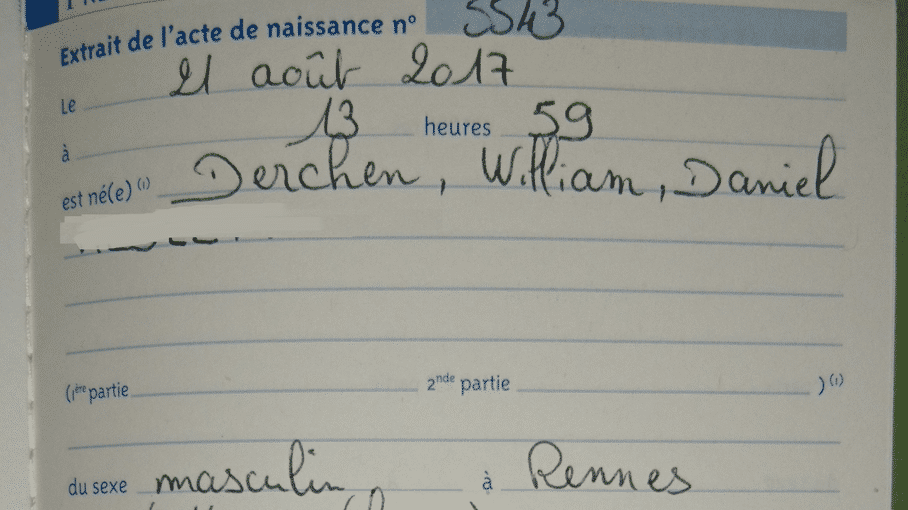 Extrait de l'acte de naissance n° 5543
Le 21 août 2017
à 13 heures 59
est né(e) (1) Derchen, William, Daniel
(1ère partie 2nde partie ) (1)
du sexe masculin à Rennes